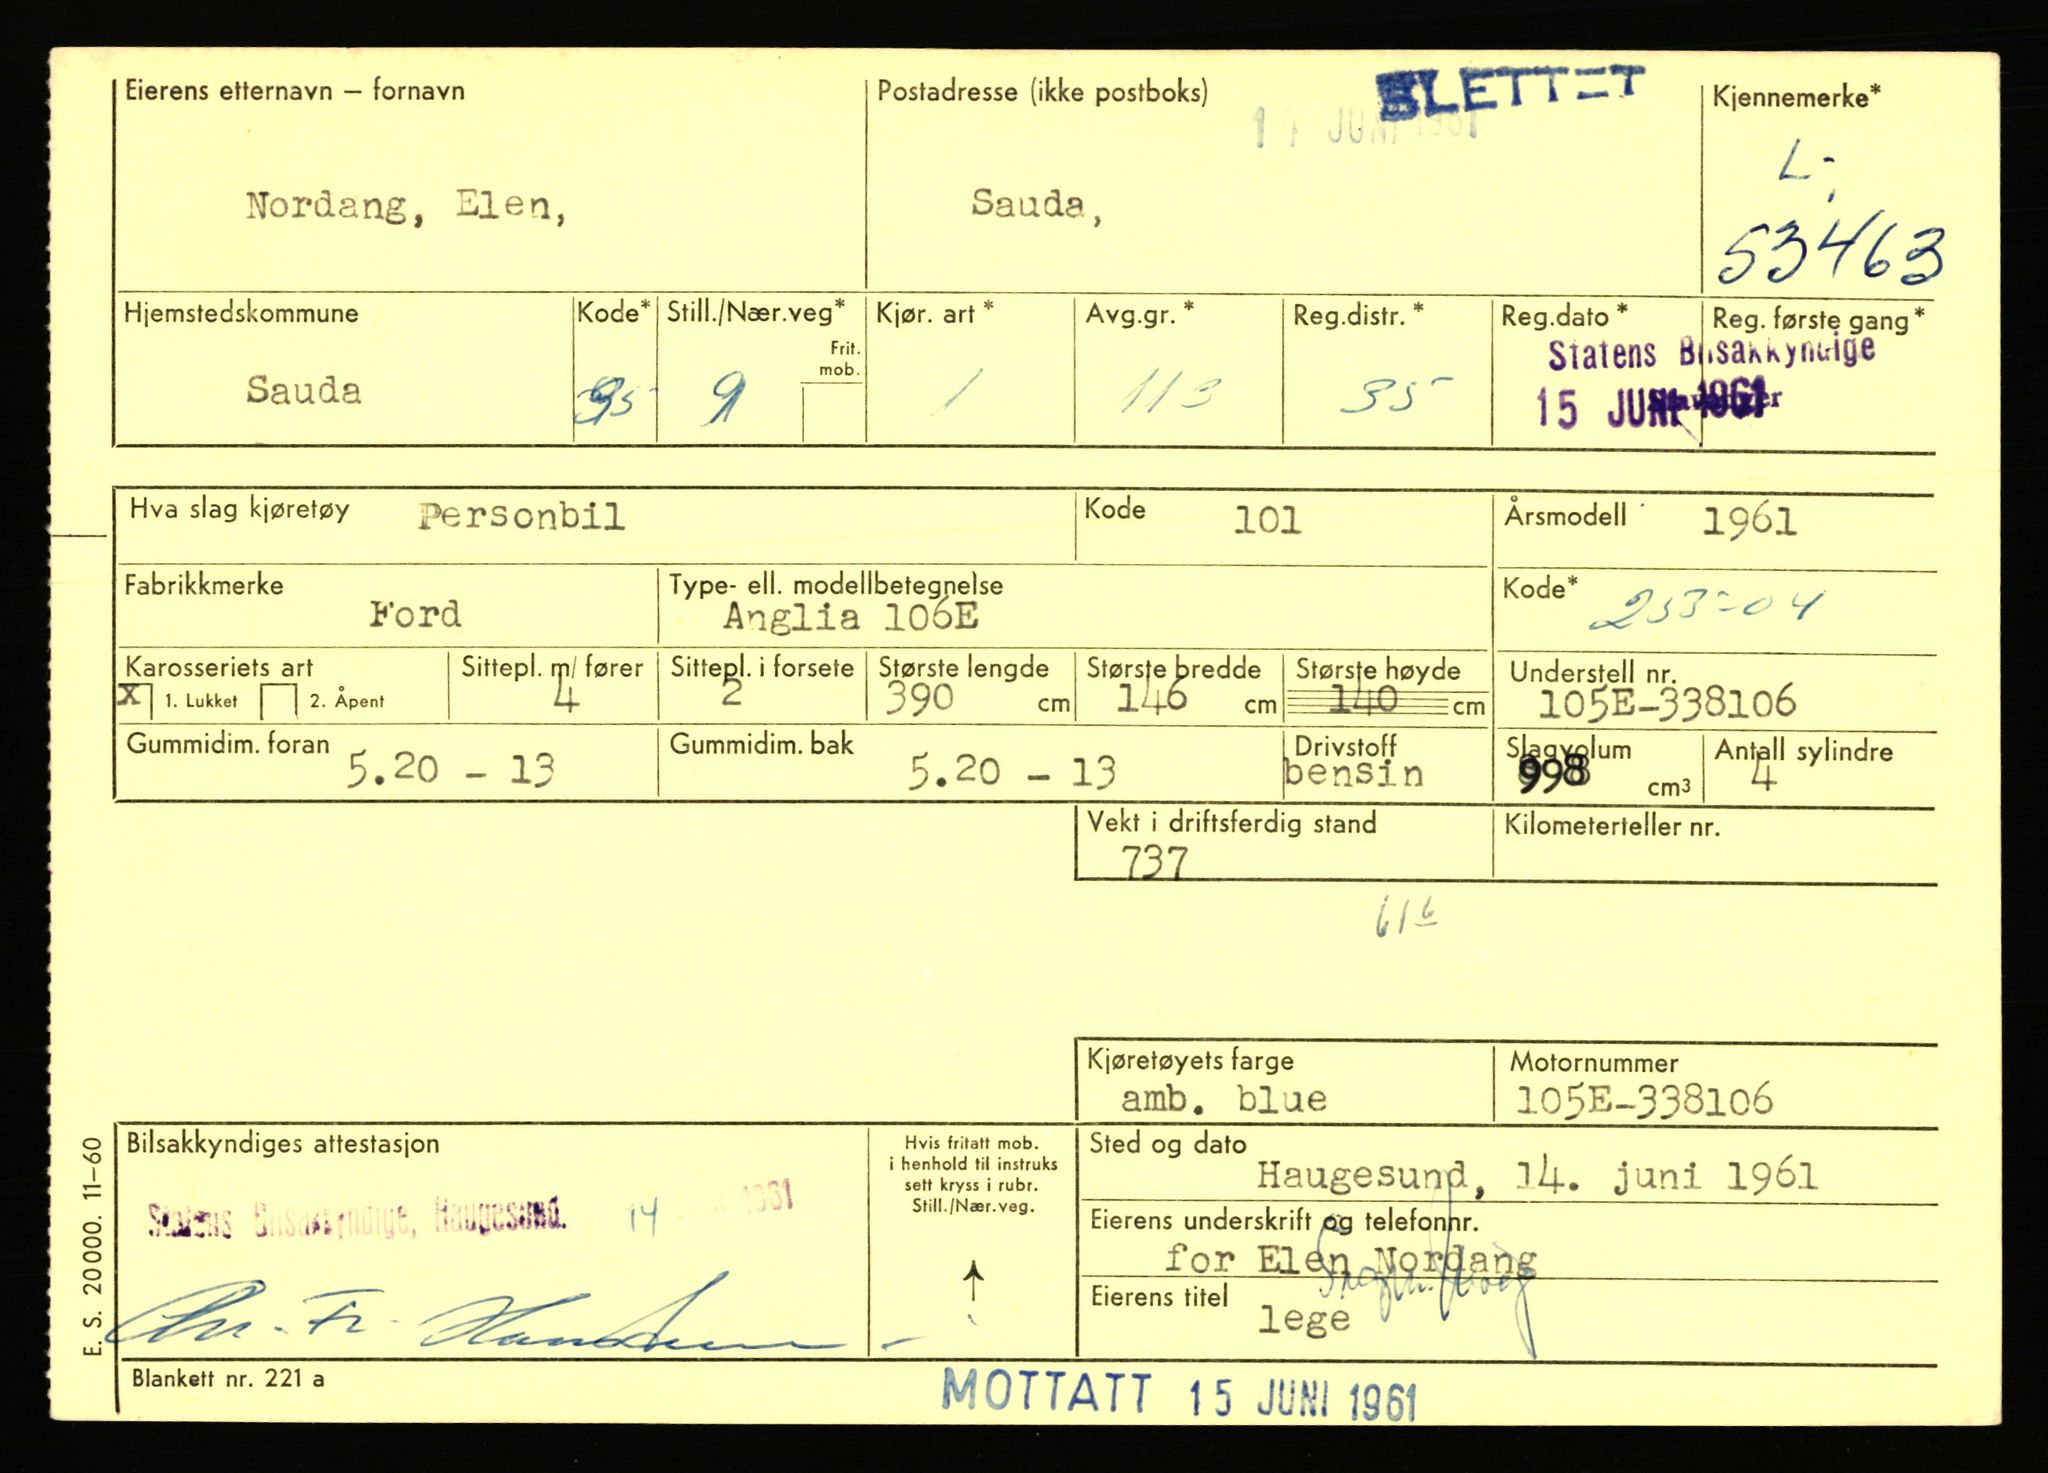 Eierens etternavn – fornavn
Postadresse (ikke postboks)
SLETTET
Kjennemerke*
14 JUNI 1961
L-
Nordang, Elen,
Sauda,
53463
Hjemstedskommune
Kode*
Still./Nær.veg*
Kjør. art*
Avg.gr.*
Reg.distr.*
Reg.dato*
Reg. første gang*
Frit. mob.
Statens Bilsakkyndige
Sauda
35
9
1
113
35
15 JUNI 1961
Stavanger
Hva slag kjøretøy Personbil
Kode 101
Årsmodell 1961
Fabrikkmerke
Type- ell. modellbetegnelse
Kode*
Ford
Anglia 106E
253-04
Karosseriets art
Sittepl. m/ fører
Sittepl. i forsete
Største lengde
Største bredde
Største høyde
Understell nr.
X 1. Lukket 2. Åpent
4
2
390 cm
146 cm
140 cm
105E-338106
Gummidim. foran
Gummidim. bak
Drivstoff
Slagvolum
Antall sylindre
5.20 - 13
5.20 - 13
bensin
998 cm3
4
Vekt i driftsferdig stand
Kilometerteller nr.
737
616
Kjøretøyets farge
Motornummer
amb. blue
105E-338106
Bilsakkyndiges attestasjon
Hvis fritatt mob.
i henhold til instruks
sett kryss i rubr.
Still./Nær.veg.
Sted og dato
Haugesund, 14. juni 1961
Statens Bilsakkyndige, Haugesund. 14 1961
Eierens underskrift og telefonnr.
for Elen Nordang
Chr. Fr.
Eierens titel
lege
E. S. 20000. 11–60
Blankett nr. 221 a
MOTTATT 15 JUNI 1961